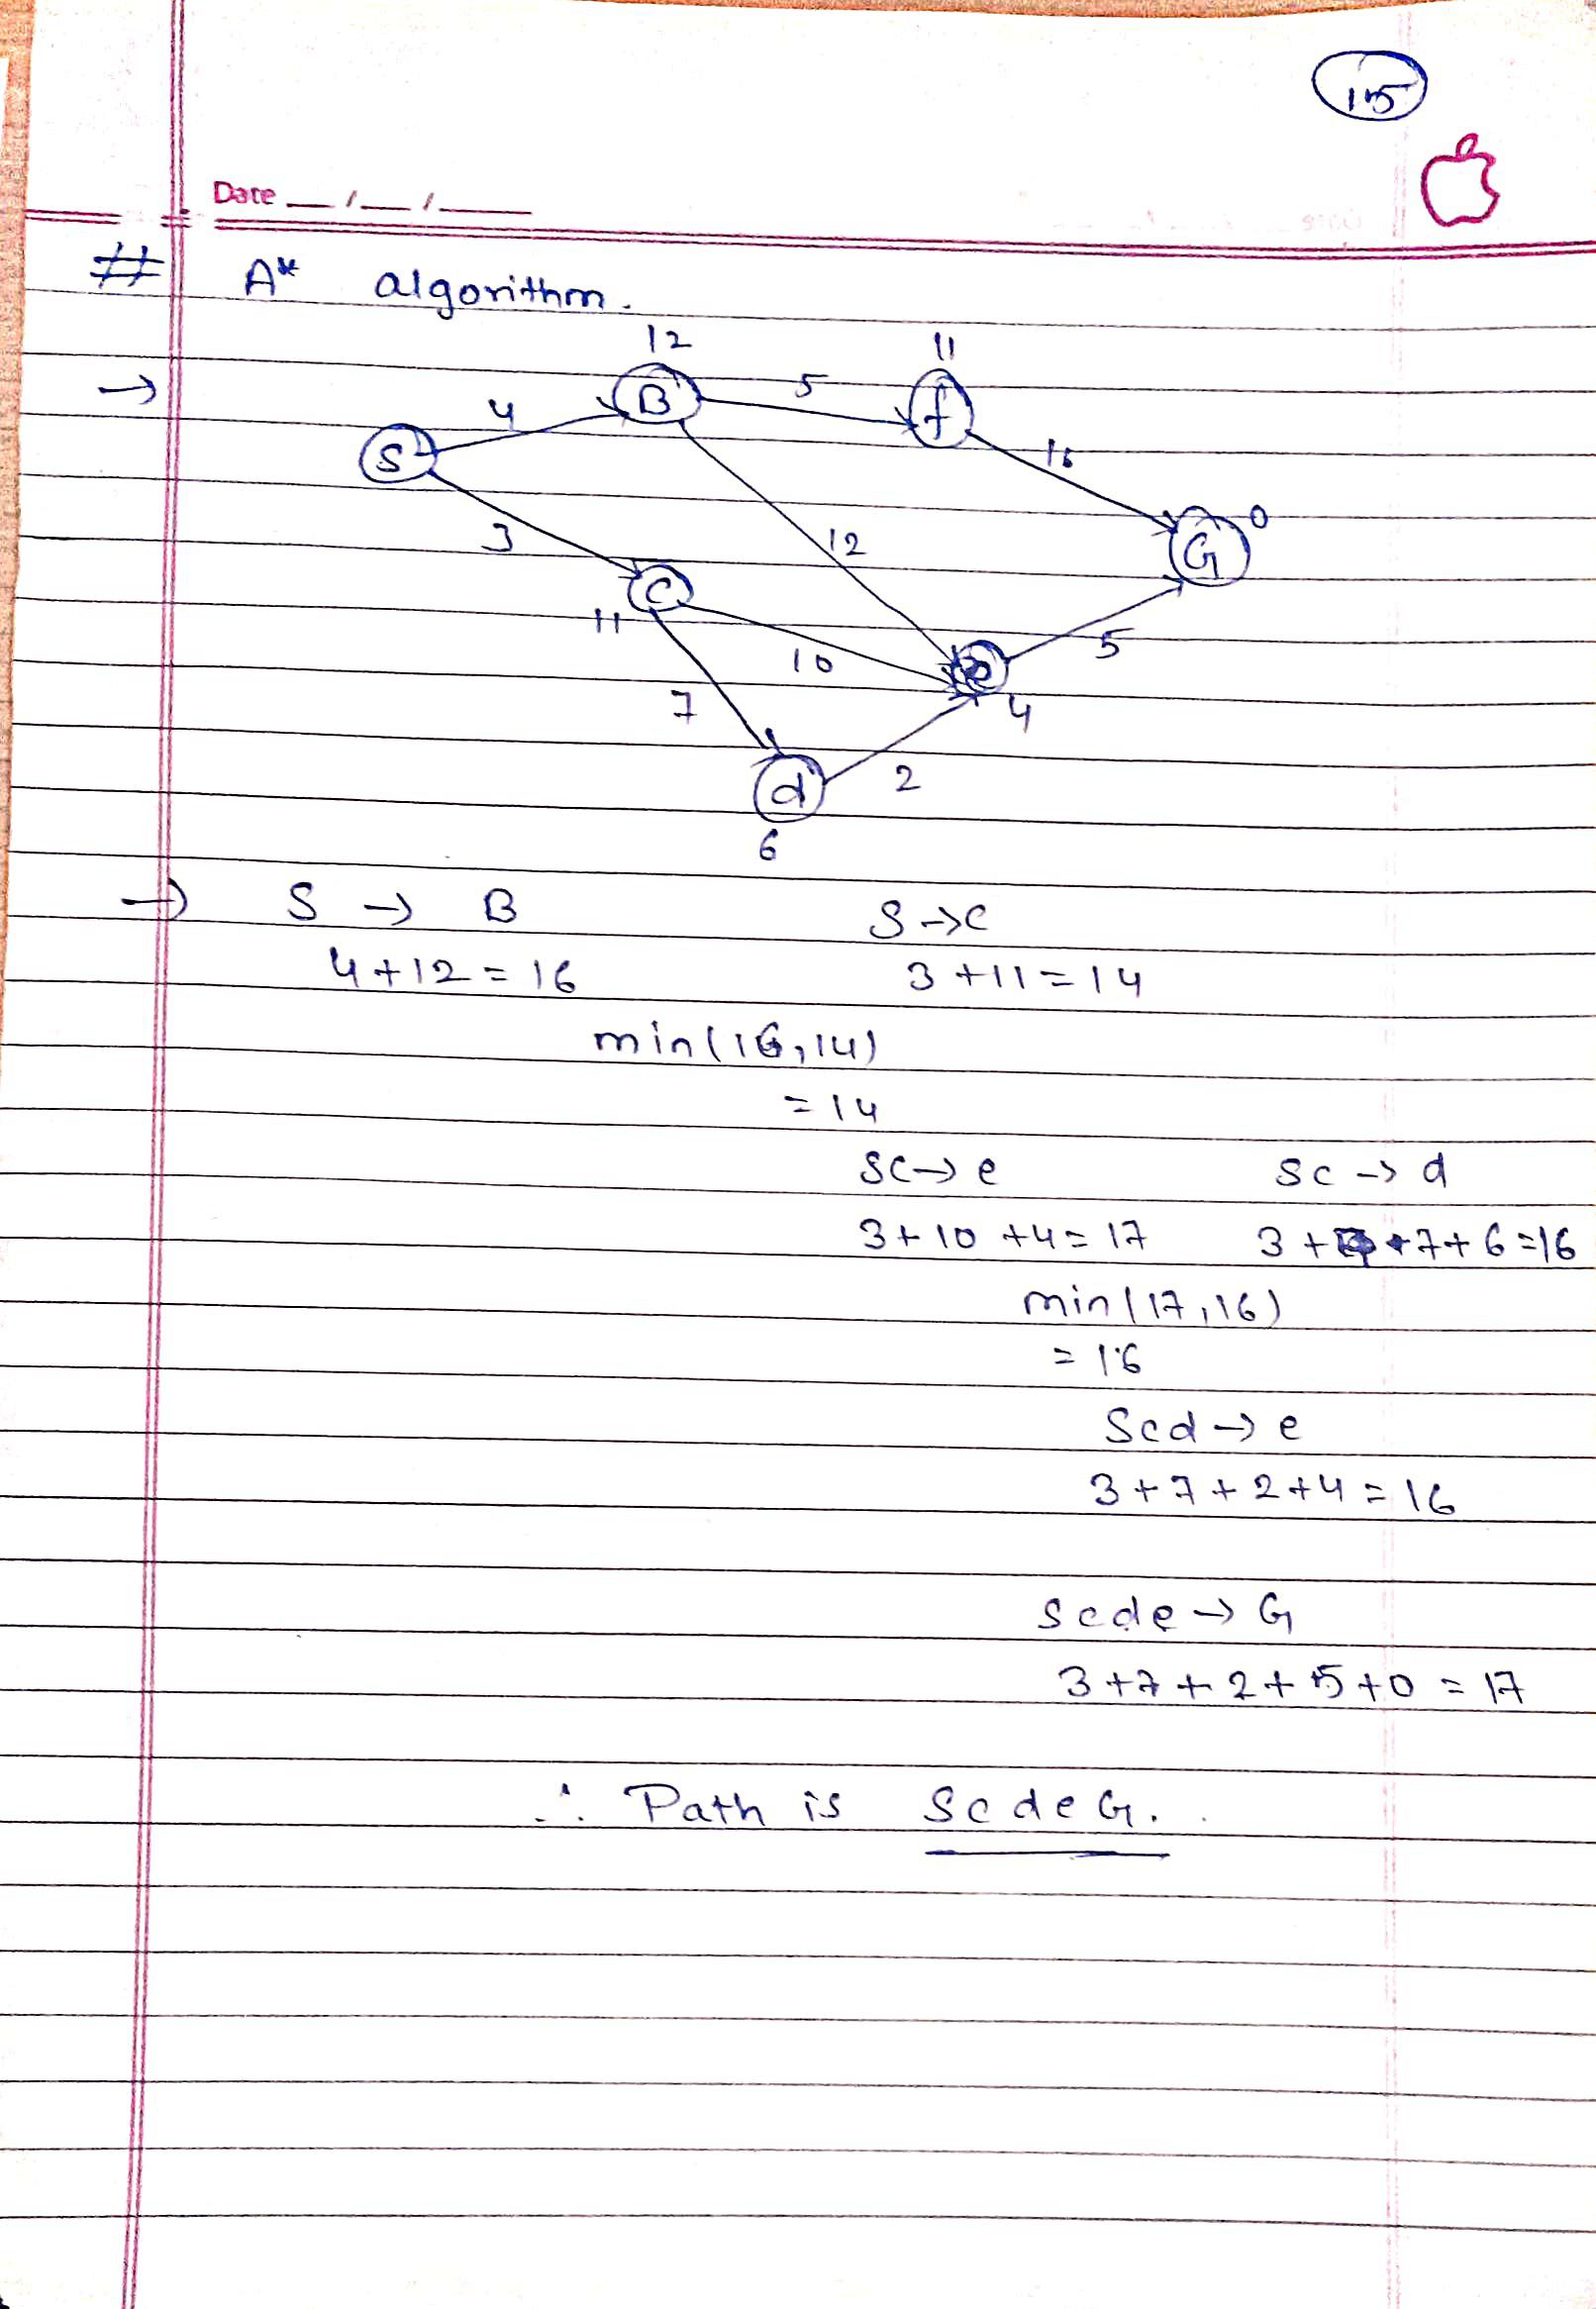 15
Date __/__/____
# A* algorithm.
12 11
→ B 5 f
4
S 16
0
3 12 G
C
11 5
10 e
7 4
d 2
6
→ S → B S → C
4+12=16 3+11=14
min(16,14)
=14
SC→e SC→d
3+10+4=17 3+7+6=16
min(17,16)
=16
Scd→e
3+7+2+4=16
Scde→G
3+7+2+5+0=17
∴ Path is ScdeG.